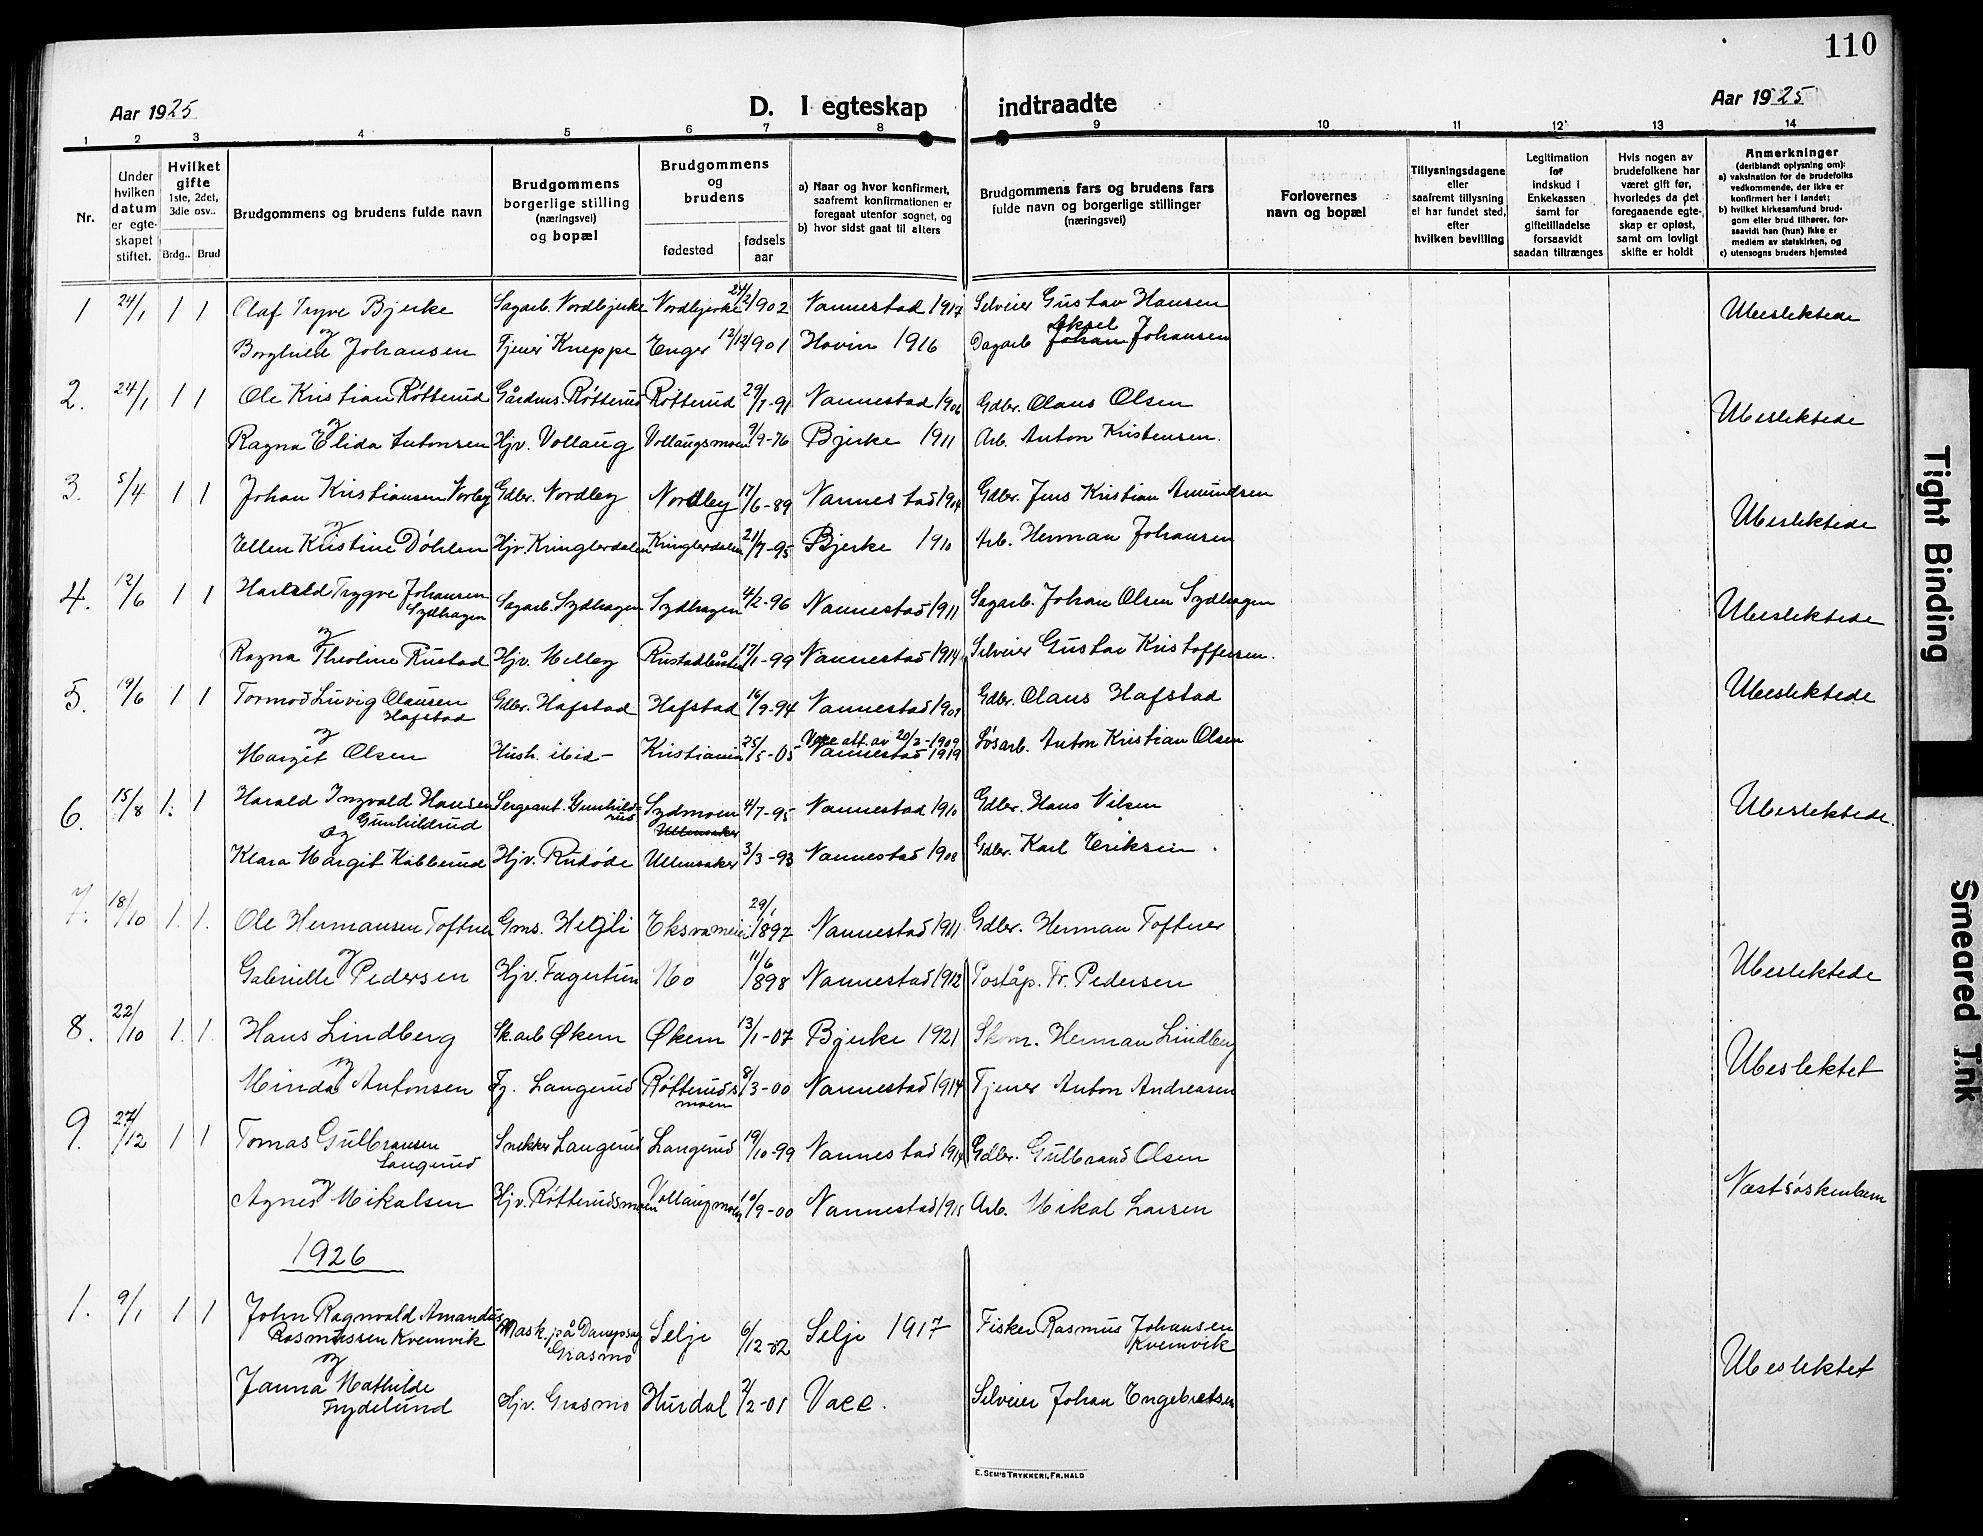 110
Aar 1925
D. I egteskap indtraadte
Aar 1925
1 2 3 4 5 6 7 8 9 10 11 12 13 14
Nr.
Under hvilken datum er egte-skapet stiftet.
Hvilket gifte 1ste, 2det, 3die osv..
Brdg.. Brud
Brudgommens og brudens fulde navn
Brudgommens borgerlige stilling (næringsvei) og bopæl
Brudgommens og brudens
fødested
fødsels aar
a) Naar og hvor konfirmert, saafremt konfirmationen er foregaat utenfor sognet, og
b) hvor sidst gaat til alters
Brudgommens fars og brudens fars fulde navn og borgerlige stillinger (næringsvei)
Forlovernes navn og bopæl
Tillysningsdagene eller saafremt tillysning ei har fundet sted, efter hvilken bevilling
Legitimation for Indskud i Enkekassen samt for giftetilladelse forsaavidt saadan tiltrænges
Hvis nogen av brudefolkene har været gift før, hvorledes da det foregaaende egte-skap er opløst, samt om lovligt skifte er holdt
Anmerkninger (deriblandt oplysning om):
a) vaksination for de brudefolks vedkommende, der ikke er konfirmert her i landet;
b) hvilket kirkesamfund brud-gom eller brud tilhører, for-saavidt han (hun) ikke er medlem av statskirken, og
c) utensogns bruders hjemsted
1 24/1 1 1 Olaf Tryve Bjerke Sagarb. Nordbjerke Nordbjerke 24/2 1902 Nannestad 1917 Selveier Gustav Hansen Ubeslektede
og
Borghild Johansen Tjener Kneppe Enger 12/12 1901 Hovin 1916 Dagarb Aksel Johansen
2. 24/1 1 1 Ole Kristian Røtterud Gårdms. Røtterud Røtterud 29/7-91 Nannestad 1906 Gdbr. Olaus Olsen Ubeslektede
og
Ragna Elida Antonsen Hjv. Vollaug Vollaugsmoen 9/9-76 Bjerke 1911 Arb. Anton Kristensen.
3. 5/4 1 1 Johan Kristiansen Norby Gdbr. Nordby Nordby 17/6-89 Nannestad 1904 Gdbr. Jens Kristian Amundsen Ubeslektede
og
Ellen Kristine Døhlen Hjv. Kringlerdalen Kringlerdalen 21/7-95 Bjerke 1910 Arb. Herman Johansen
4. 12/6 1 1 Harald Trygve Johansen Sydhagen Sagarb. Sydhagen Sydhagen 4/2-96 Nannestad 1911 Sagarb. Johan Olsen Sydhagen Ubeslektede
og
Ragna Theoline Rustad Hjv. Melby 17/1-99 Nannestad 1914 Selveier Gustav Kristoffersen.
5. 19/6 1 1 Tormod Luvig Olausen Hafstad Gdbr. Hafstad Hafstad 16/9-94 Nannestad 1909 Gdbr. Olaus Hafstad Ubeslektede
og
Margit Olsen Hush. ibid- Kristiania 25/5-05 Vacc att. av 20/2-1909 Nannestad 1919 Løsarb. Anton Kristian Olsen
6. 15/8 1. 1 Harald Ingvald Hansen Gunhildrud Sergeant. Gunhildrud Sydmoen Ullensaker 4/7-95 Nannestad 1910 Gdbr. Hans Nilsen Ubeslektede.
og
Klara Margit Kabberud Hjv. Rudøde Ullensaker 3/3-93 Nannestad 1908 Gdbr. Karl Eriksen.
7. 18/10 1. 1. Ole Hermansen Toftner Gms. Heljli 29/1 1897 Nannestad 1911 Gdbr. Herman Toftner
og
Gabrielle Pedersen Hjv. Fagertun Mo 11/6 1898 Nannestad 1912 Poståp. Fr. Pedersen Ubeslektede
8. 22/10 1. 1. Hans Lindberg Sk.arb Økern Økern 13/1-07 Bjerke 1921 Skom. Herman Lindberg Ubeslektet
og
Minda Antonsen Tj. Langerud Røtterudsmoen 8/3-00 Nannestad 1914 Tjener Anton Andreasen
9. 27/12 1 1 Tomas Gulbransen Langerud Snekker Langerud Langerud 19/10-99 Nannestad 1914 Gdbr. Gulbrand Olsen
og
Agnes Mikalsen Hjv. Røtterudsmoen Vollaugmoen 10/9-00 Nannestad 1915 Arb. Mikal Larsen Næstsøskenbarn
1926
1. 9/1 1 1 John Ragnvald Amandus Rasmussen Kvemvik Mask. på Dampsag Grasmo Selje 6/12-02 Selje 1917 Fisker Rasmus Johansen Kvemvik Ubeslektet
og
Janna Mathilde Frydelund Hjv. Grasmo Hurdal 2/2-01 Vacc. Selveier Johan Engebretsen
E. SEM'S TRYKKERI, FR.HALD
Tight Binding
Smeared Ink